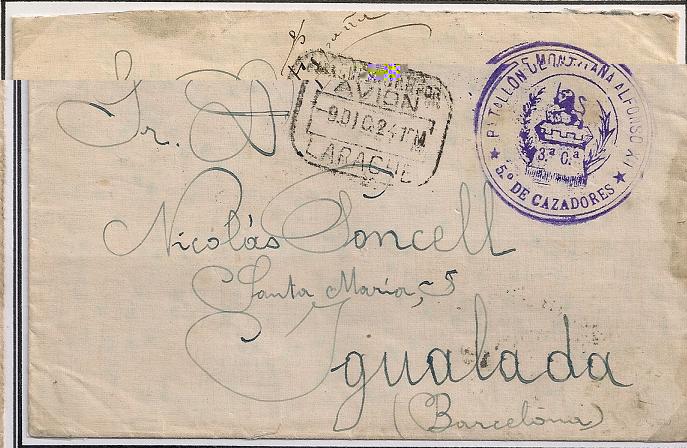 España
AVION
9.DIC.24.1TM
LARACHE
BATALLON MONTAÑA ALFONSO XII
S
3.ª C.ª
★ 5.º DE CAZADORES ★
Sr. D.
Nicolás Soncell
Santa María, 5
Igualada
(Barcelona)